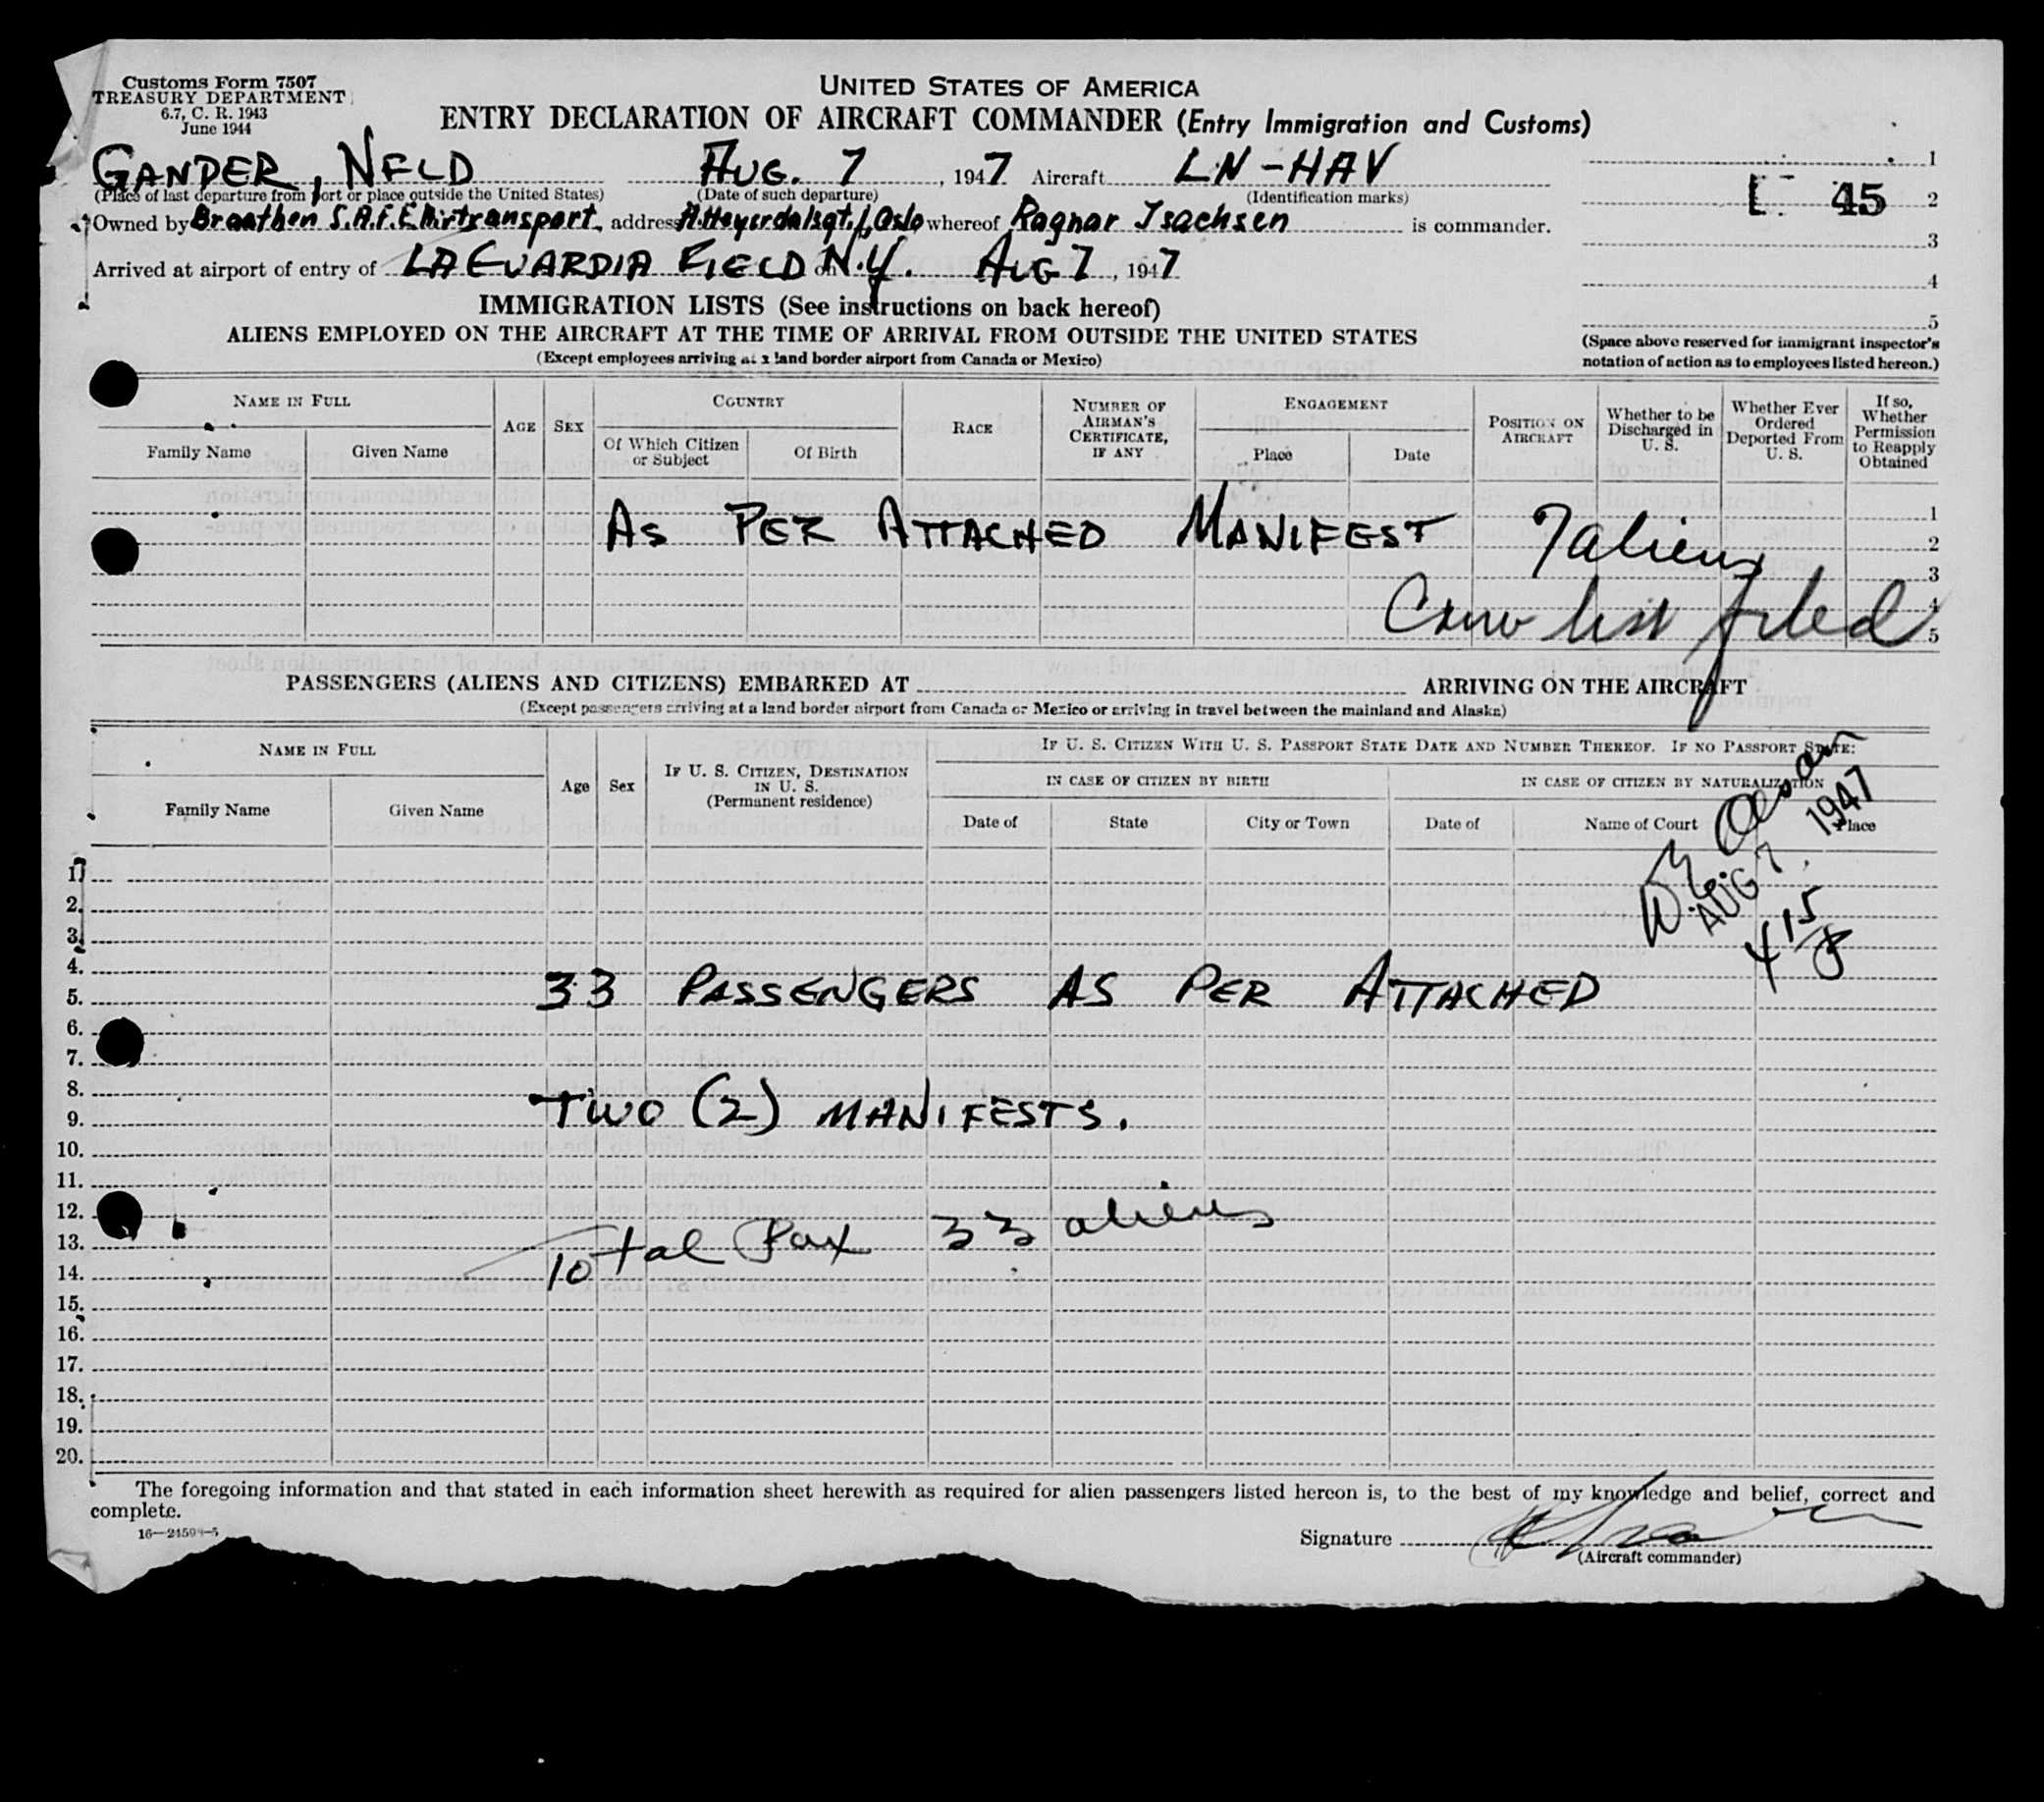 Customs Form 7507
TREASURY DEPARTMENT
6.7, C. R. 1943
June 1944
UNITED STATES OF AMERICA
ENTRY DECLARATION OF AIRCRAFT COMMANDER (Entry Immigration and Customs)
GANDER, NFLD AUG. 7, 1947 Aircraft LN-HAV
(Place of last departure from port or place outside the United States) (Date of such departure) (Identification marks)
Owned by Braathen S.A.F.E. Airtransport, address H.Heyerdalsgt. 1, Oslo whereof Ragnar Isachsen is commander.
Arrived at airport of entry of LAGUARDIA FIELD on N.Y. AUG 7, 1947
1
45 2
3
4
5
(Space above reserved for immigrant inspector's notation of action as to employees listed hereon.)
IMMIGRATION LISTS (See instructions on back hereof)
ALIENS EMPLOYED ON THE AIRCRAFT AT THE TIME OF ARRIVAL FROM OUTSIDE THE UNITED STATES
(Except employees arriving at a land border airport from Canada or Mexico)
NAME IN FULL
Family Name Given Name
AGE SEX
COUNTRY
Of Which Citizen or Subject Of Birth
RACE
NUMBER OF AIRMAN'S CERTIFICATE, IF ANY
ENGAGEMENT
Place Date
POSITION ON AIRCRAFT
Whether to be Discharged in U. S.
Whether Ever Ordered Deported From U. S.
If so, Whether Permission to Reapply Obtained
1
AS PER ATTACHED MANIFEST 7 aliens 2
3
Crew list filed 4
5
PASSENGERS (ALIENS AND CITIZENS) EMBARKED AT ARRIVING ON THE AIRCRAFT
(Except passengers arriving at a land border airport from Canada or Mexico or arriving in travel between the mainland and Alaska)
NAME IN FULL
Family Name Given Name
Age Sex
IF U. S. CITIZEN, DESTINATION IN U. S.
(Permanent residence)
IF U. S. CITIZEN WITH U. S. PASSPORT STATE DATE AND NUMBER THEREOF. IF NO PASSPORT STATE:
IN CASE OF CITIZEN BY BIRTH IN CASE OF CITIZEN BY NATURALIZATION
Date of State City or Town Date of Name of Court Place
AUG 7 1947
1.
2.
3.
4.
5. 33 PASSENGERS AS PER ATTACHED
6.
7.
8.
9. TWO (2) MANIFESTS.
10.
11.
12.
13. Total Pax 33 aliens
14.
15.
16.
17.
18.
19.
20.
The foregoing information and that stated in each information sheet herewith as required for alien passengers listed hereon is, to the best of my knowledge and belief, correct and
complete.
Signature
(Aircraft commander)